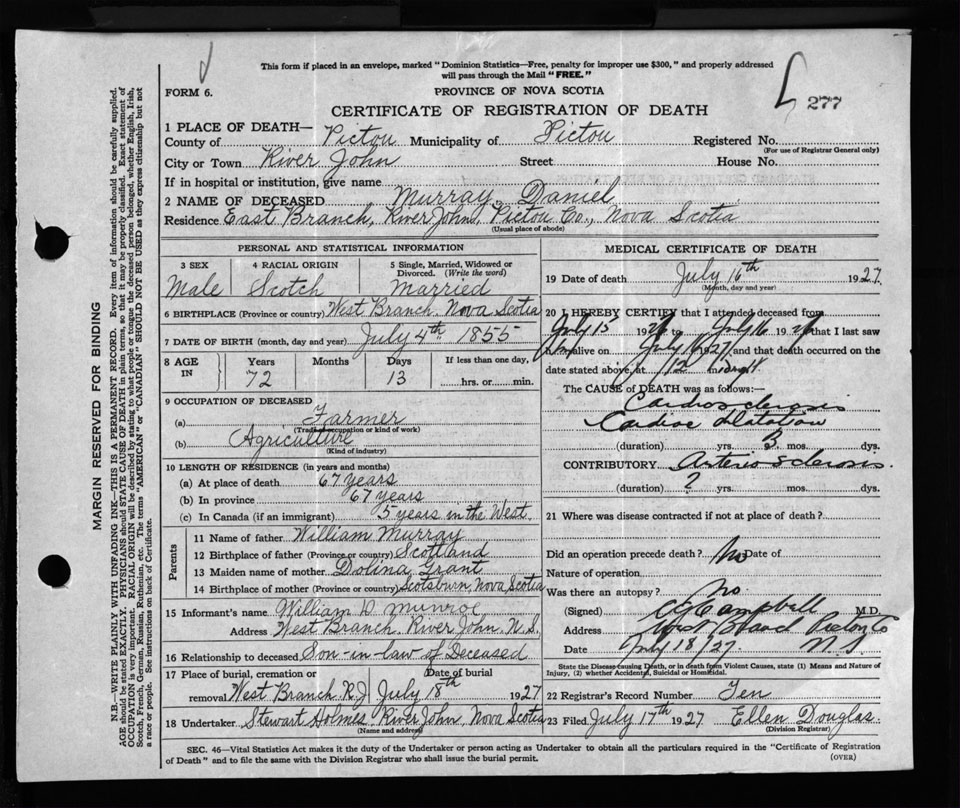 This form if placed in an envelope, marked "Dominion Statistics—Free, penalty for improper use $300," and properly addressed
will pass through the Mail "FREE."
FORM 6.
PROVINCE OF NOVA SCOTIA
277
CERTIFICATE OF REGISTRATION OF DEATH
MARGIN RESERVED FOR BINDING
N.B.—WRITE PLAINLY WITH UNFADING INK—THIS IS A PERMANENT RECORD. Every item of information should be carefully supplied.
AGE should be stated EXACTLY. PHYSICIANS should STATE CAUSE OF DEATH in plain terms, so that it may be properly classified. Exact statement of
OCCUPATION is very important. RACIAL ORIGIN will be described by stating to what people or tongue the deceased person belonged, whether English, Irish,
Scotch, French, German, Russian, Ruthenian, etc. The terms "AMERICAN" or "CANADIAN" SHOULD NOT BE USED as they express citizenship but not
a race or people. See instructions on back of Certificate.
1 PLACE OF DEATH—
County of Pictou Municipality of Pictou Registered No.
(For use of Registrar General only)
City or Town River John Street House No.
If in hospital or institution, give name
2 NAME OF DECEASED Murray, Daniel
Residence East Branch, River John, Pictou Co., Nova Scotia
(Usual place of abode)
PERSONAL AND STATISTICAL INFORMATION
3 SEX 4 RACIAL ORIGIN 5 Single, Married, Widowed or
Divorced. (Write the word)
Male Scotch Married
6 BIRTHPLACE (Province or country) West Branch, Nova Scotia
7 DATE OF BIRTH (month, day and year) July 4th 1855
8 AGE IN Years Months Days If less than one day,
72 13 hrs. or min.
9 OCCUPATION OF DECEASED
(a) Farmer
(Trade, occupation or kind of work)
(b) Agriculture
(Kind of industry)
10 LENGTH OF RESIDENCE (in years and months)
(a) At place of death 67 years
(b) In province 67 years
(c) In Canada (if an immigrant) 5 years in the West.
Parents
11 Name of father William Murray
12 Birthplace of father (Province or country) Scottland
13 Maiden name of mother Dolina Grant
14 Birthplace of mother (Province or country) Scotsburn, Nova Scotia
15 Informant's name William D Munroe
Address West Branch, River John, N.S.
16 Relationship to deceased Son-in-law of Deceased
17 Place of burial, cremation or Date of burial
removal West Branch R.J July 18th 1927
18 Undertaker Stewart Holmes River John, Nova Scotia
(Name and address)
MEDICAL CERTIFICATE OF DEATH
19 Date of death July 16th 1927.
(Month, day and year)
20 I HEREBY CERTIFY that I attended deceased from
July 15 1927 to July 16 1927 that I last saw
him alive on July 16 1927 and that death occurred on the
date stated above, at 12
The CAUSE of DEATH was as follows:—
Cardiosclerosis
Cardiac dilatation
(duration) yrs. 3 mos. dys.
CONTRIBUTORY Arterio sclerosis.
(duration) ? yrs. mos. dys.
21 Where was disease contracted if not at place of death?
Did an operation precede death? No Date of
Nature of operation
Was there an autopsy? No.
(Signed) Campbell M.D.
Address West Branch Pictou Co
Date July 18/27. N.S.
State the Disease causing Death, or in death from Violent Causes, state (1) Means and Nature of
Injury, (2) whether Accidental, Suicidal or Homicidal.
22 Registrar's Record Number Ten
23 Filed July 17th 1927 Ellen Douglas.
(Division Registrar)
SEC. 46—Vital Statistics Act makes it the duty of the Undertaker or person acting as Undertaker to obtain all the particulars required in the "Certificate of Registration
of Death" and to file the same with the Division Registrar who shall issue the burial permit.
(OVER)